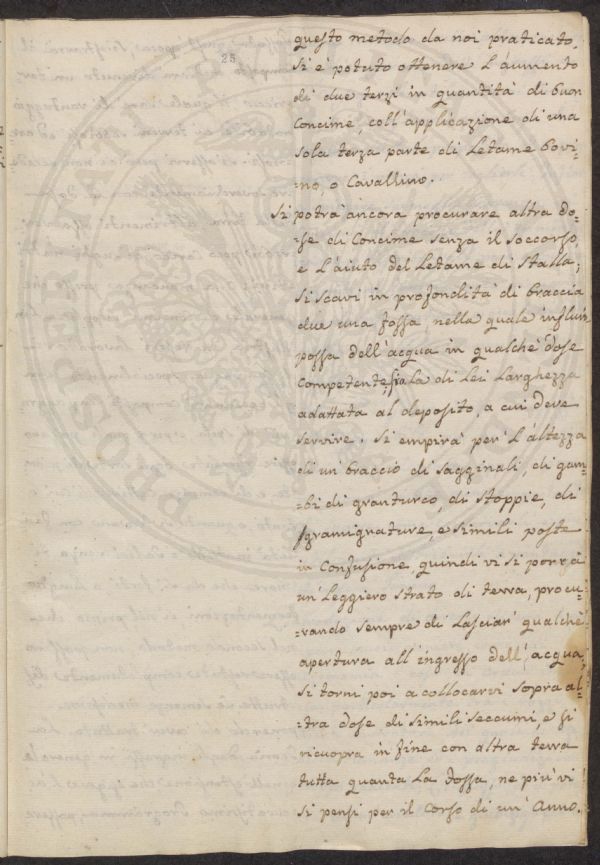 25
questo metodo da noi praticato,
si è potuto ottenere l'aumento
di due terzi in quantità di buon
Concime, coll'applicazione di una
sola terza parte di Letame Bovi-
no, o Cavallino.
Si potrà ancora procurare altra do=
=se di Concime senza il soccorso,
e l'aiuto del Letame di Stalla;
Si scavi in profondità di braccia
due una fossa, nella quale influir
possa dell'acqua in qualche dose
Competente, sia la di Lei Larghezza
adattata al deposito, a cui deve
servire. Si empirà per l'altezza
di un braccio di sagginali, di gam=
=bi di granturco, di stoppie, di
sgramignature, e simili poste
in Confusione, quindi vi si porrà
un Leggiero strato di terra, procu=
=rando sempre di Lasciar' qualche
apertura all'ingresso dell'acqua,
si torni poi a collocarvi sopra al=
=tra dose di simili seccumi, e si
ricuopra in fine con altra terra
tutta quanta la fossa, ne più vi
si pensi per il Corso di un' Anno.